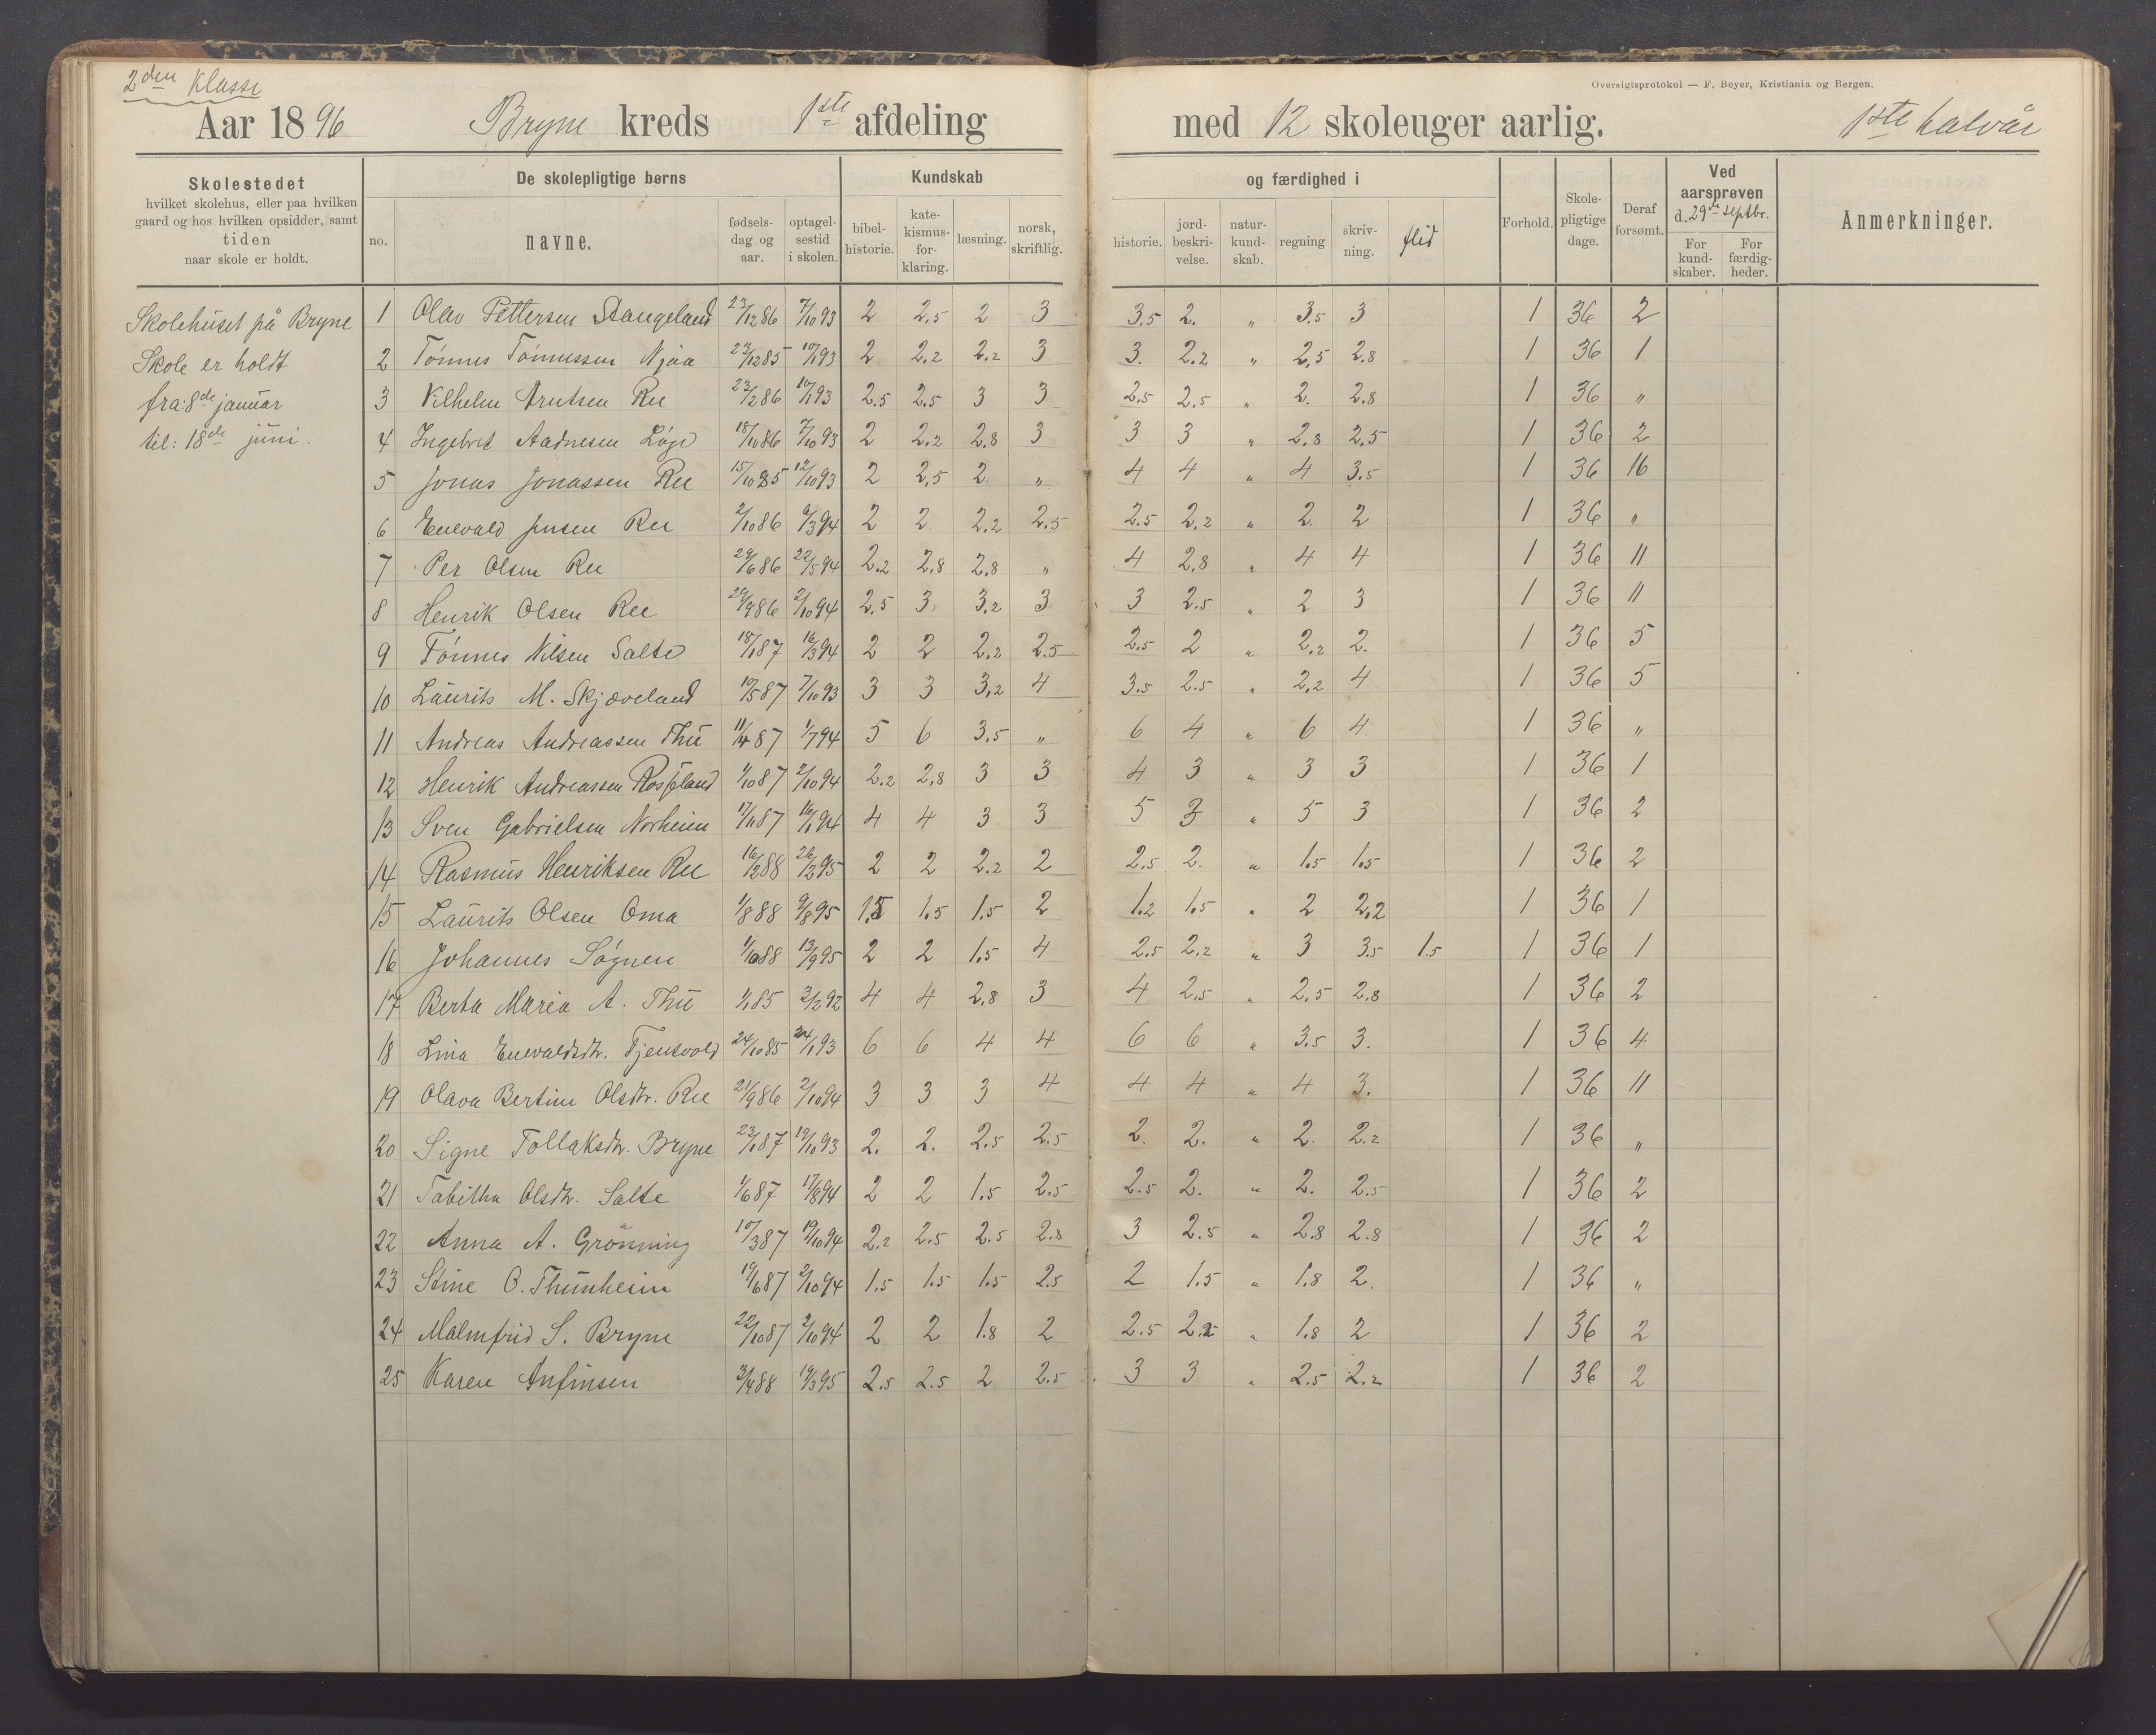 2den Klasse
Oversigtsprotokol — F. Beyer, Kristiania og Bergen.
Aar 1896 Bryne kreds 1ste afdeling med 12 skoleuger aarlig. 1ste halvår
Skolestedet
hvilket skolehus, eller paa hvilken
gaard og hos hvilken opsidder, samt
tiden
naar skole er holdt.
De skolepligtige børns
no. navne. fødselsdag og aar. optagelsestid i skolen.
Kundskab og færdighed i
bibelhistorie. katekismusforklaring. læsning. norsk, skriftlig. historie. jordbeskrivelse. naturkundskab. regning skrivning. flid
Forhold. Skolepligtige dage. Deraf forsømt.
Ved aarsprøven d. 29de septbr.
For kundskaber. For færdigheder.
Anmerkninger.
Skolehuset på Bryne
Skole er holdt
fra: 8de januar
til: 18de juni.
1 Olav Pettersen Stangeland 23/12 86 7/10 93 2 2.5 2 3 3.5 2. „ 3.5 3 1 36 2
2 Tønnes Tønnessen Njaa 23/12 85 10/1 93 2 2.2 2.2 3 3. 2.2 „ 2,5 2.8 1 36 1
3 Vilhelm Arntsen Ree 23/2 86 10/1 93 2.5 2.5 3 3 2.5 2.5 „ 2. 2.8 1 36 „
4 Ingebret Aadnesen Løge 18/10 86 7/10 93 2 2.2 2.8 3 3 3 „ 2.8 2.5 1 36 2
5 Jonas Jonassen Ree 15/10 85 12/10 93 2 2,5 2. „ 4 4 „ 4 3.5 1 36 16
6 Enevald Jensen Ree 2/10 86 6/3 94 2 2 2.2 2.5 2.5 2.2 „ 2 2 1 36 „
7 Per Olsen Ree 29/6 86 22/5 94 2.2 2.8 2.8 „ 4 2.8 „ 4 4 1 36 11
8 Henrik Olsen Ree 29/9 86 2/10 94 2.5 3 3.2 3 3 2.5 „ 2 3 1 36 11
9 Tønnes Nilsen Salte 18/1 87 16/3 94 2 2 2.2 2.5 2.5 2 „ 2.2 2. 1 36 5
10 Laurits M. Skjæveland 10/5 87 7/10 93 3 3 3,2 4 3.5 2.5 „ 2,2 4 1 36 5
11 Andreas Andreassen Thu 11/4 87 1/7 94 5 6 3.5 „ 6 4 „ 6 4 1 36 „
12 Henrik Andreassen Rosseland 1/10 87 2/10 94 2.2 2.8 3 3 4 3 „ 3 3 1 36 1
13 Sven Gabrielsen Norheim 17/11 87 16/1 94 4 4 3 3 5 3 „ 5 3 1 36 2
14 Rasmus Henriksen Ree 16/2 88 26/2 95 2 2 2.2 2 2.5 2. „ 1.5 1.5 1 36 2
15 Laurits Olsen Oma 1/8 88 9/8 95 1.5 1.5 1.5 2 1.2 1.5 „ 2 2,2 1 36 1
16 Johannes Søgnen 1/10 88 13/9 95 2 2 1.5 4 2.5 2.2 „ 3 3.5 1.5 1 36 1
17 Berta Maria A. Thu 1/1 85 3/2 92 4 4 2.8 3 4 2.5 „ 2.5 2.8 1 36 2
18 Lina Enevaldsdtr. Tjensvold 24/10 85 24/1 93 6 6 4 4 6 6 „ 3.5 3. 1 36 4
19 Olava Bertine Olsdtr. Ree 21/9 86 2/10 94 3 3 3 4 4 4 „ 4 3. 1 36 11
20 Signe Tollaksdtr. Bryne 23/1 87 19/10 93 2. 2. 2.5 2.5 2. 2. „ 2. 2.2 1 36 „
21 Tabitha Olsdtr. Salte 1/6 87 17/8 94 2 2 1.5 2.5 2.5 2. „ 2. 2.5 1 36 2
22 Anna A. Grønning 10/3 87 19/10 94 2.2 2.5 2.5 2.8 3 2.5 „ 2.8 2.8 1 36 2
23 Stine O. Thunheim 19/6 87 2/10 94 1.5 1.5 1.5 2.5 2 1.5 „ 1.8 2. 1 36 „
24 Malmfrid S. Bryne 22/10 87 2/10 94 2 2 1.8 2 2.5 2.2 „ 1.8 2 1 36 2
25 Karen Anfinsen 3/4 88 19/3 95 2.5 2.5 2 2.5 3 3 „ 2.5 2.2 1 36 2